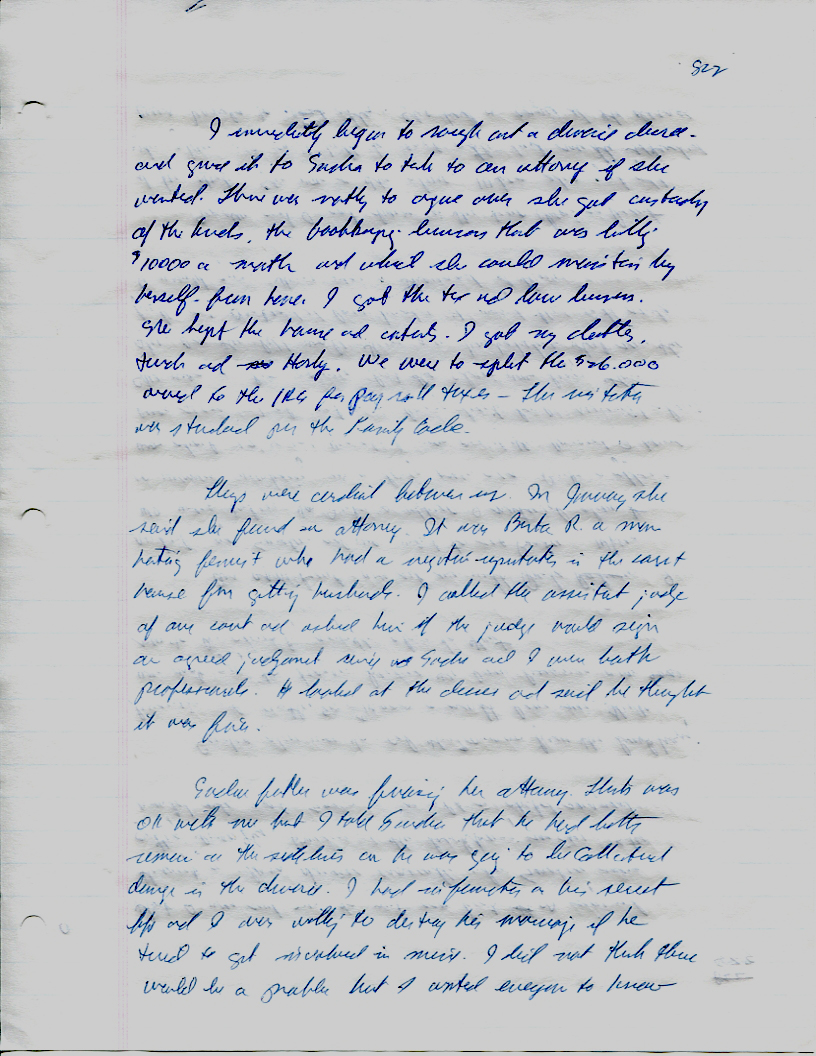 822
I immeditly began to rough out a divorce decree -
and give it to Sasha to talk to an attorney if she
wanted. There was nothy to argue over she got custody
of the kids, the bookkeepg business that was billig
$10000 a month and which she could maintain by
herself from home. I got the tax and law business.
She kept the house and contents. I got my clothes,
truck and Harly. We were to split the $26.000
owed to the IRS for pay roll taxes - The visitation
was standard per the Family Code.
Things were cordial between us. In January she
said she found an attorney. It was Berta R. a man
hating feminist who had a negative reputation in the court
house for gutting husbands. I called the assistant judge
of our court and asked him if the judge would sign
an agreed judgment since Sasha and I were both
professionals. He looked at the decree and said he thought
it was fine.
Sasha father was financing her attorney. That was
OK with me but I told Sasha that he had better
remain on the sidelines or he was going to be Collateral
damage in the divorce. I had information on his secret
life and I was willing to destroy his marriage if he
tried to get involved in mine. I did not think there
would be a problem but I wanted everyone to know